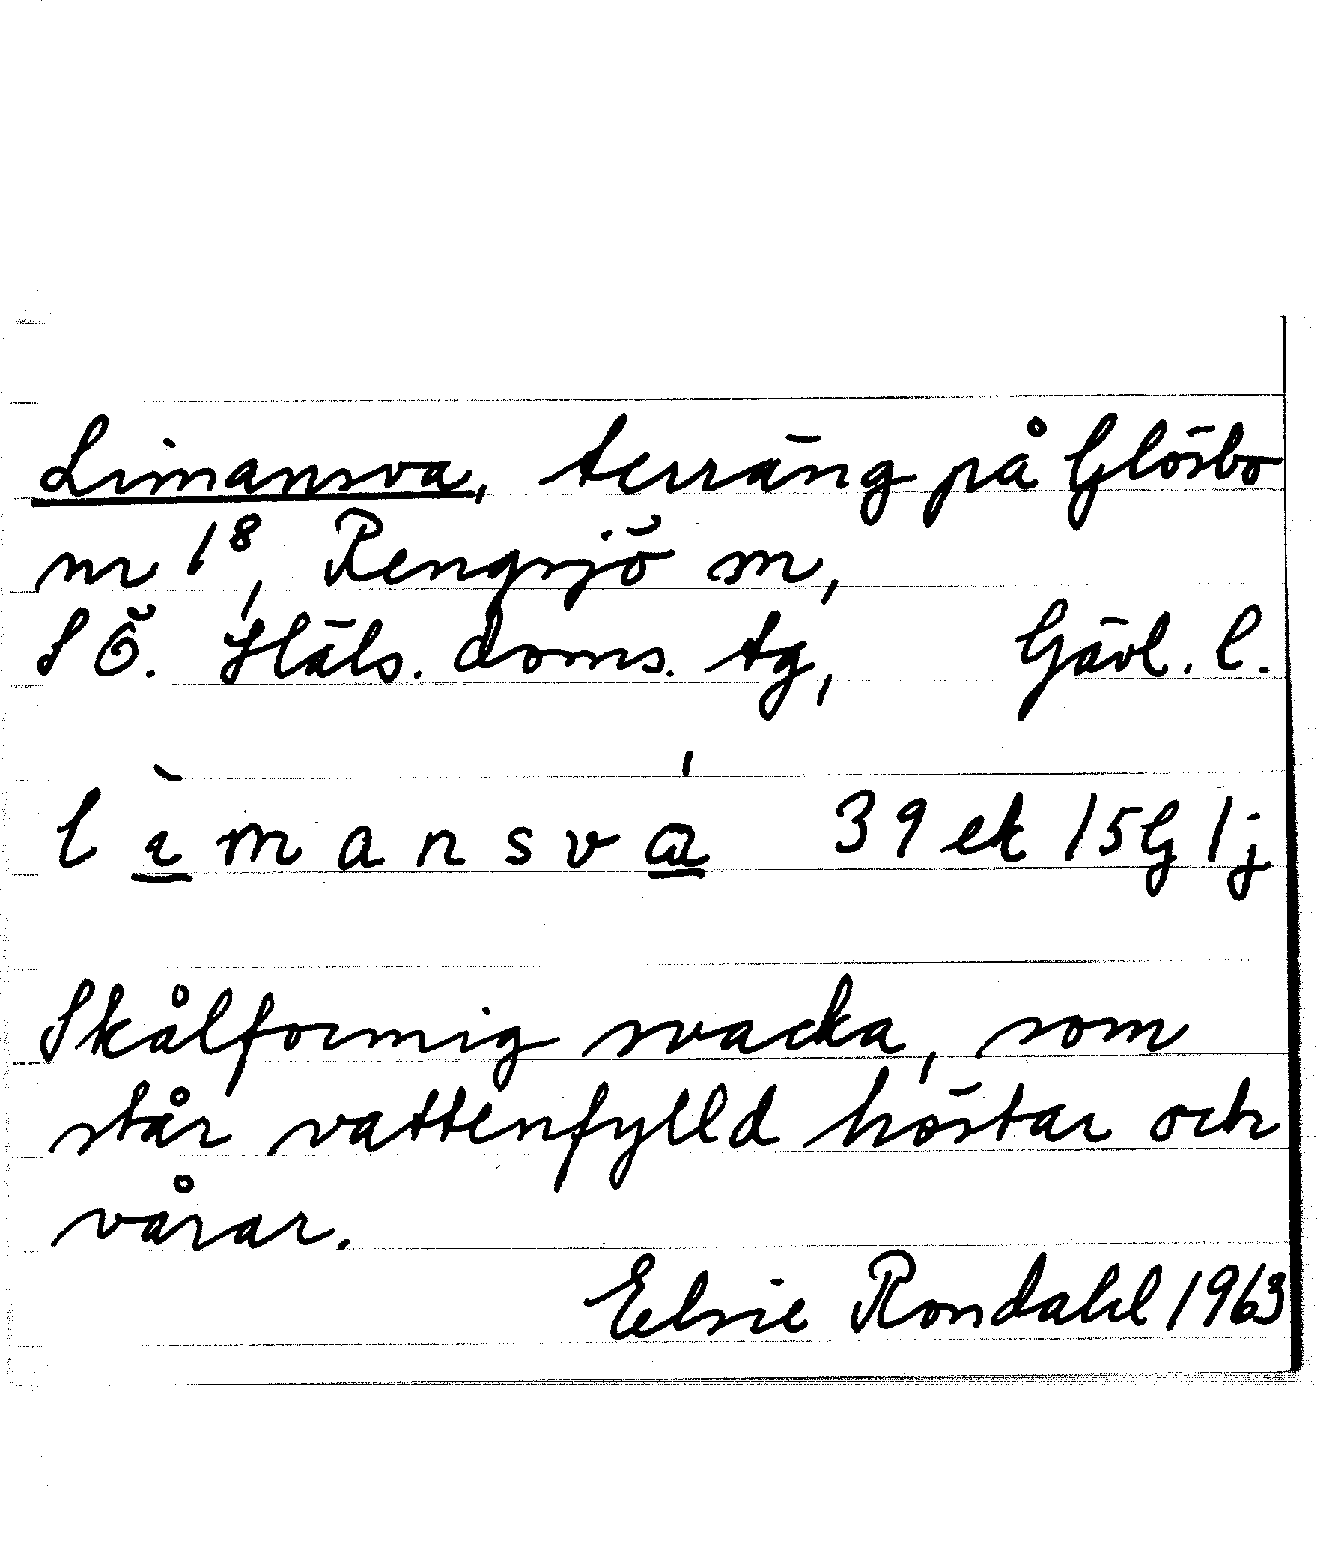 Limansva, terräng på Glösbo
nr 1⁸, Rengsjö sn,
S Ö. Häls. doms. tg, Gävl. l.
l ì m a n s v á 39 ek 15G 1j
Skålformig svacka, som
står vattenfylld höstar och
vårar.
Elsie Rondahl 1963